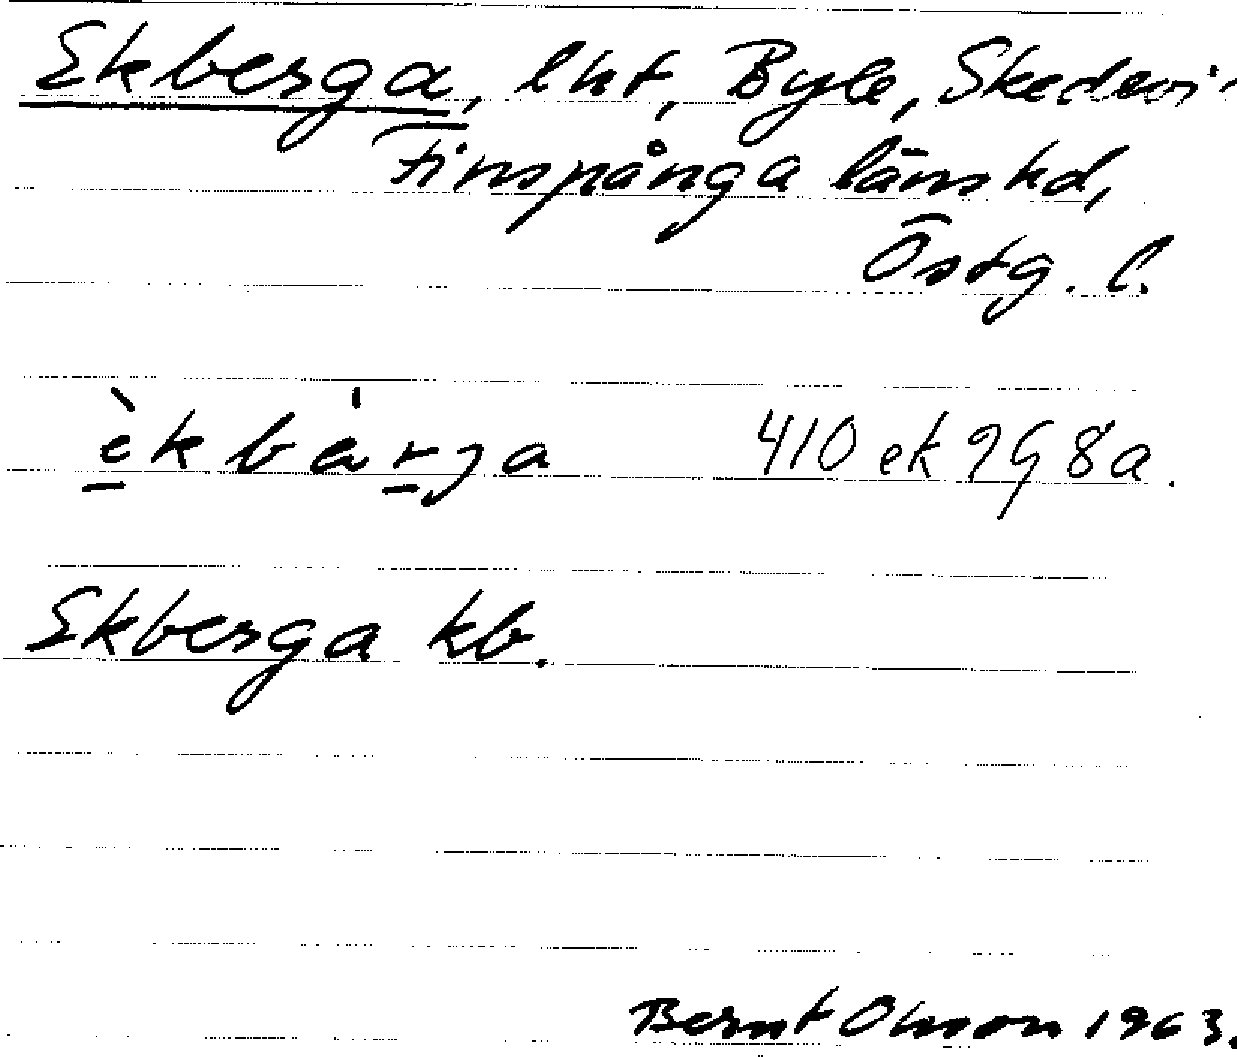 Ekberga, lht, Byle, Skedevi
Finspånga länshd,
Östg. l.
èkbärja 410 ek 29 8a.
Ekberga kb.
Bernt Olsson 1963.